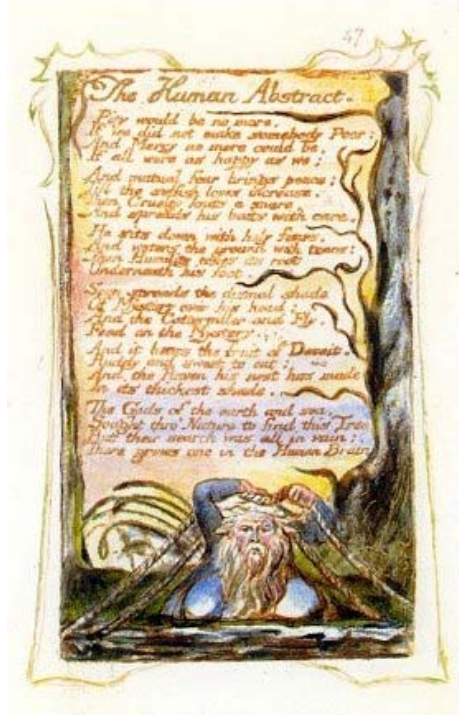 47
The Human Abstract.
Pity would be no more,
If we did not make somebody Poor:
And Mercy no more could be,
If all were as happy as we;
And mutual fear brings peace;
Till the selfish loves increase.
Then Cruelty knits a snare,
And spreads his baits with care.
He sits down with holy fears,
And waters the ground with tears:
Then Humility takes its root
Underneath his foot.
Soon spreads the dismal shade
Of Mystery over his head;
And the Catterpiller and Fly,
Feed on the Mystery.
And it bears the fruit of Deceit,
Ruddy and sweet to eat;
And the Raven his nest has made
In its thickest shade.
The Gods of the earth and sea,
Sought thro' Nature to find this Tree
But their search was all in vain:
There grows one in the Human Brain